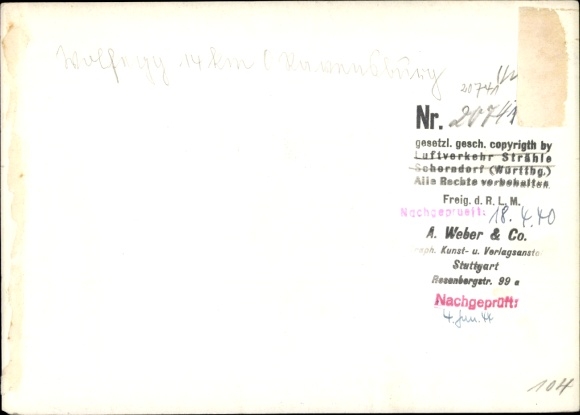 Wolfegg 14 km ( Ravensburg
20741
Nr. 20741
gesetzl. gesch. copyrigth by
Luftverkehr Strähle
Schorndorf (Württbg.)
Alle Rechte vorbehalten
Freig. d. R. L. M.
Nachgeprueft: 18. 4. 40
A. Weber & Co.
raph. Kunst- u. Verlagsanstal
Stuttgart
Rosenbergstr. 99 a
Nachgeprüft:
4. Jun. 44
104